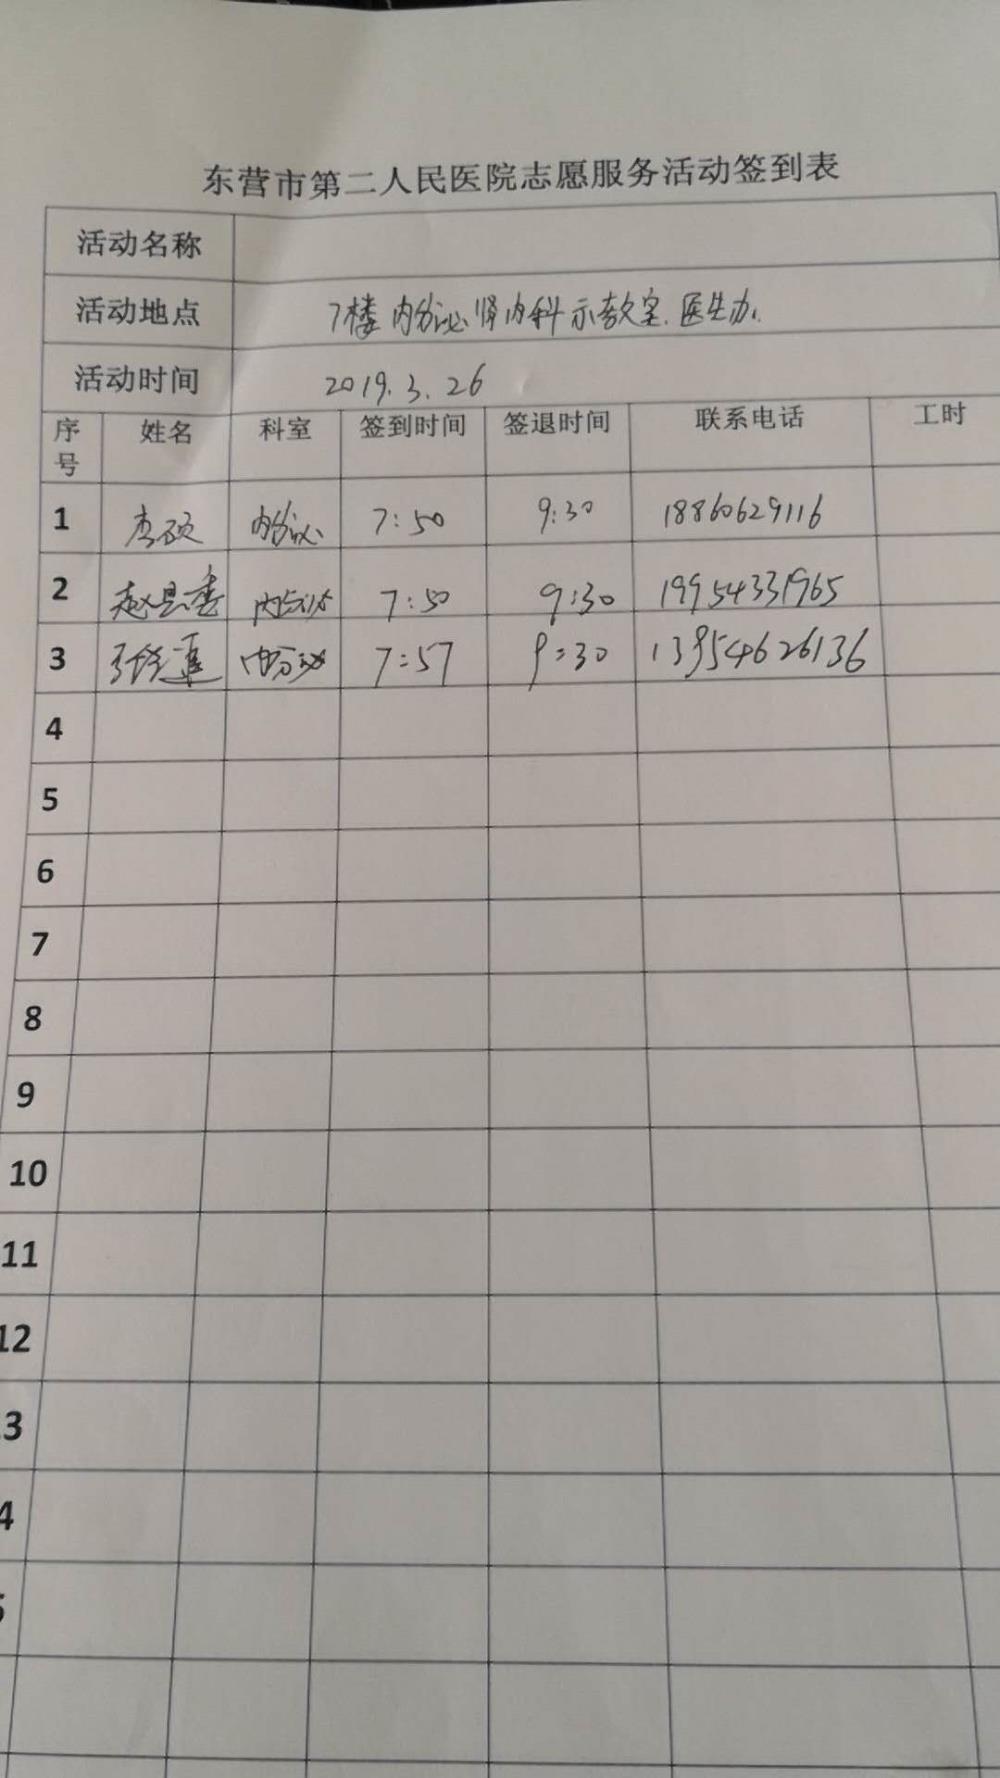 东营市第二人民医院志愿服务活动签到表
活动名称
活动地点 7楼 内分泌 肾内科 示教室. 医生办.
活动时间 2019.3.26
序号 姓名 科室 签到时间 签退时间 联系电话 工时
1 李硕 内分泌 7:50 9:30 18860629116
2 赵 内分泌 7:50 9:30 19954331965
3 张 内分泌 7:57 9:30 13954626136
4
5
6
7
8
9
10
11
12
3
4
5